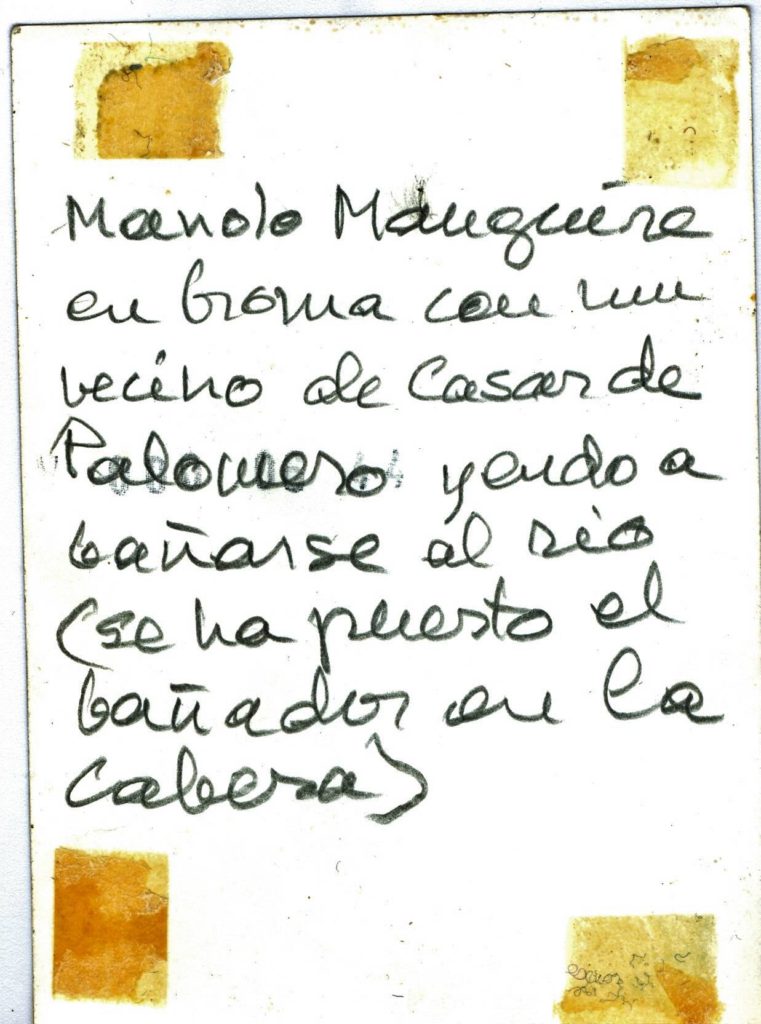 Manolo Manguira
en broma con un
vecino de Casar de
Palomero yendo a
bañarse al rio
(se ha puesto el
bañador en la
cabesa)